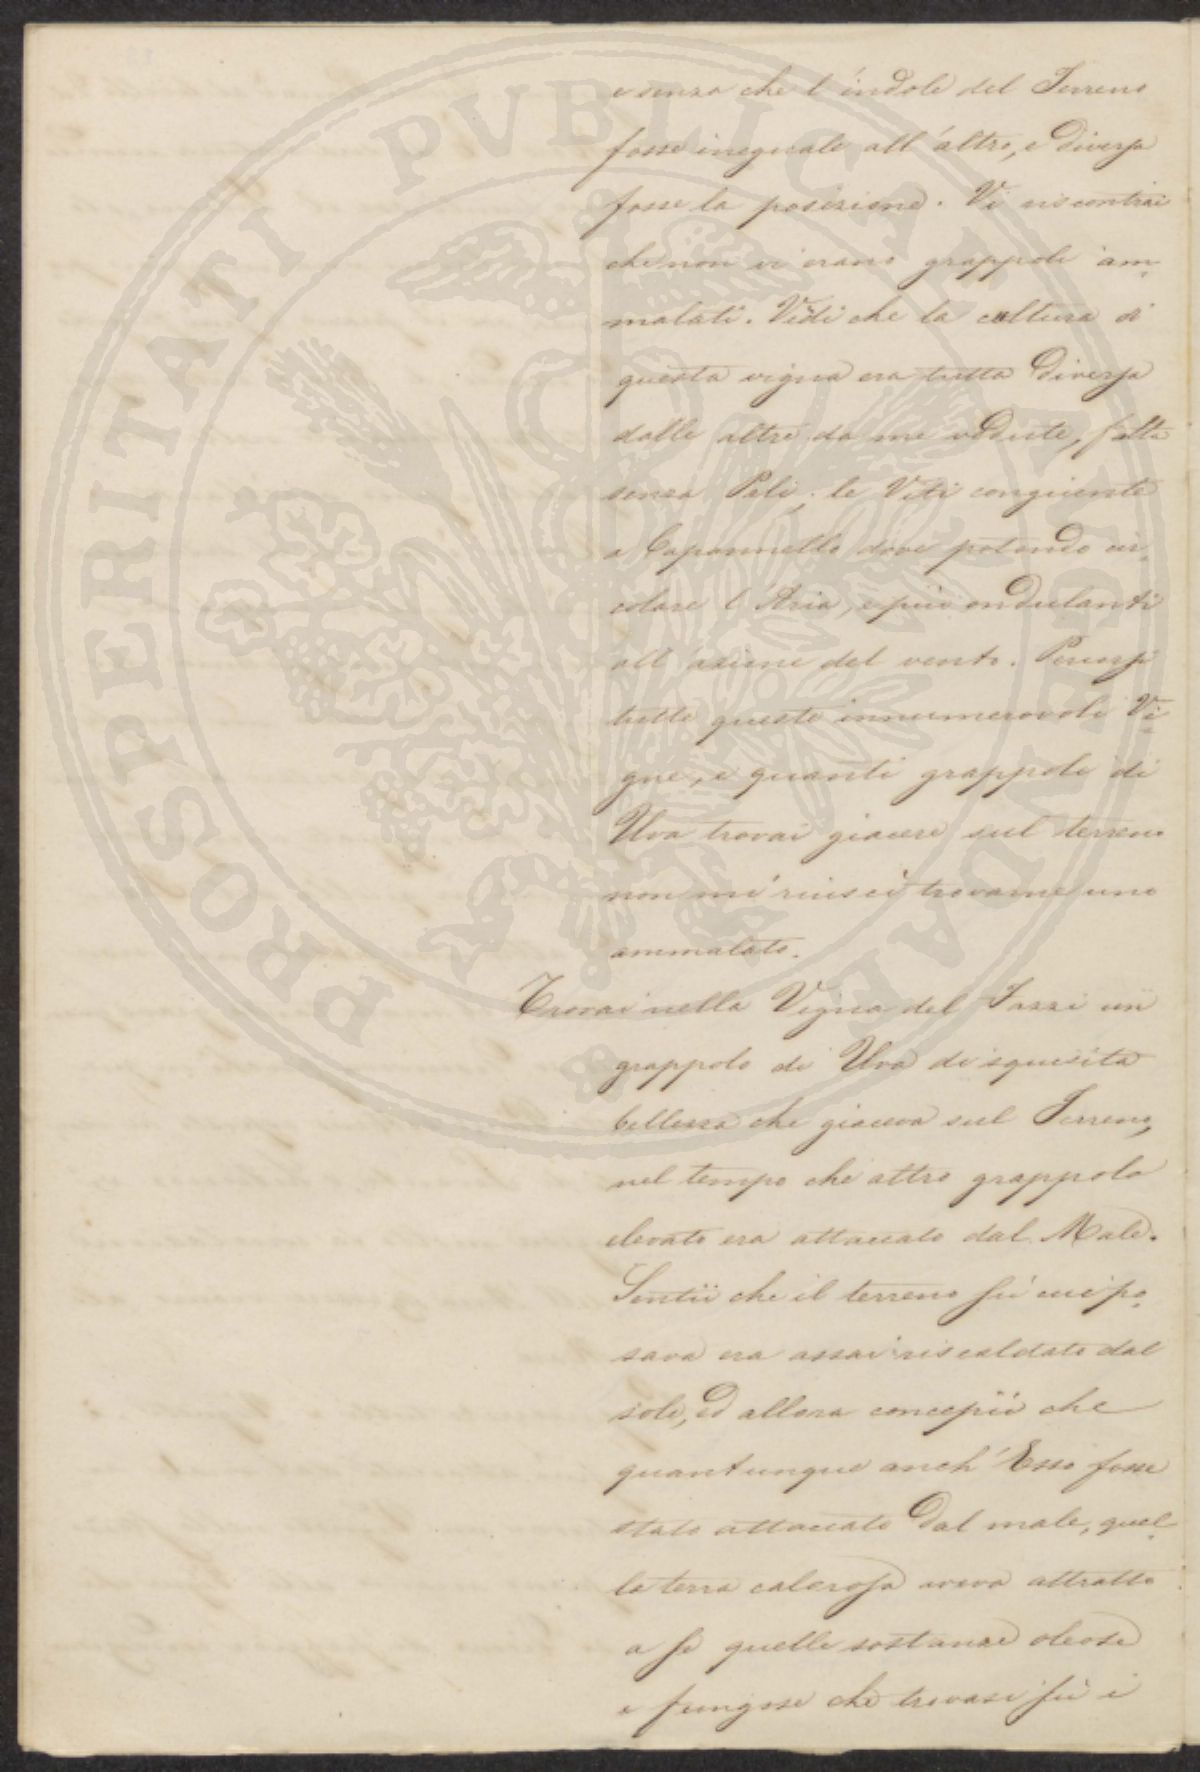 e senza che l'indole del Terreno
fosse ineguale all'altro, e diversa
fosse la posizione. Vi riscontrai
che non vi erano grappoli am-
malati. Vidi che la coltura di
questa vigna era tutta diversa
dalle altre da me vedute, fatta
senza Pali; le Viti congiunte
a Capannello dove potendo cir-
colare l'Aria, e più ondulanti
all'azione del vento. Percorsi
tutte queste innumerevoli Vi-
gne, e quanti grappoli di
Uva trovai giacere sul terreno
non mi riuscì trovarne uno
ammalato.
Trovai nella Vigna del Sassi un
grappolo di Uva di squisita
bellezza che giaceva sul Terreno,
nel tempo che altro grappolo
elevato era attaccato dal Male.
Sentii che il terreno su cui po-
sava era assai riscaldato dal
sole, ed allora concepii che
quantunque anch'Esso fosse
stato attaccato dal male, quel-
la terra calorosa aveva attratto
a se quelle sostanze oleose
e fungose che trovasi su i
PROSPERITATI PVBLICAE AVGENDAE